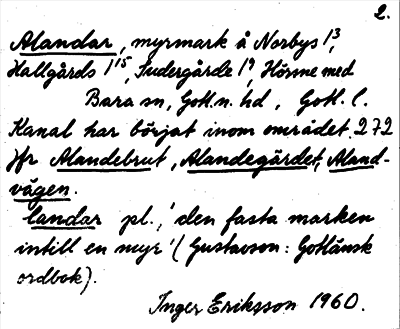 2.
Alandar, myrmark å Norbys 1³,
Hallgårds 1¹⁵, Sudergårde 1⁹, Hörsne med
Bara sn, Gotl.n. hd, Gotl. l.
Kanal har börjat inom området. 272
Jfr Alandebrut, Alandegärdet, Aland-
vägen.
landar pl., 'den fasta marken
intill en myr' (Gustavson: Gotländsk
ordbok).
Inger Eriksson 1960.